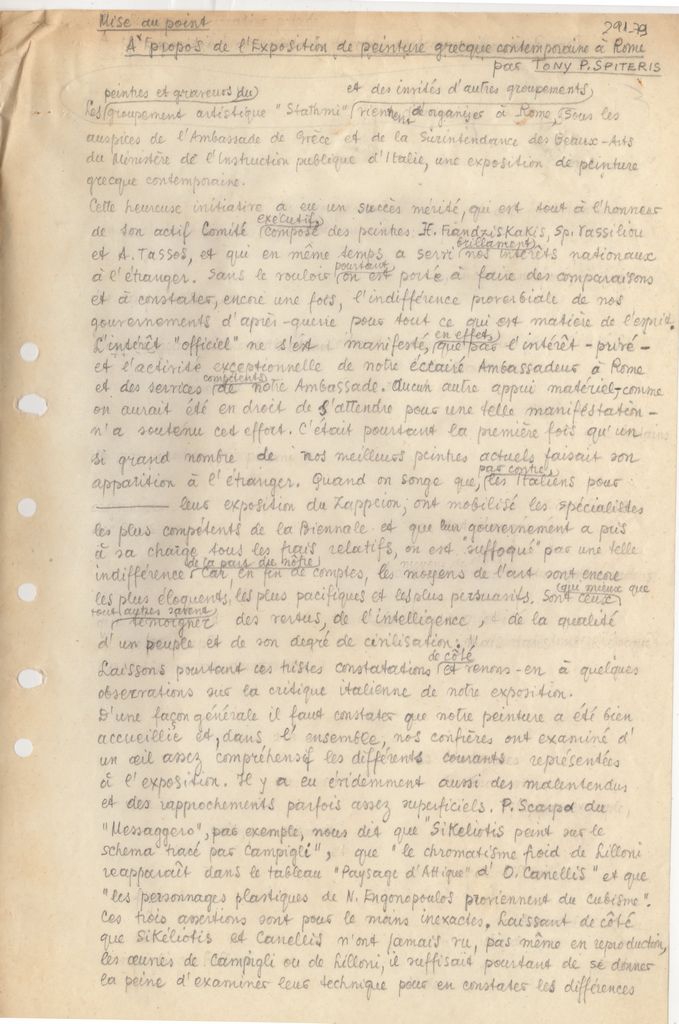 Mise au point
29179
A propos de l'Exposition de peinture grecque contemporaine à Rome
par TONY P. SPITERIS
peintres et graveurs du
et des invités d'autres groupements
Les groupement artistique "Stathmi" viennent d'organiser à Rome, sous les
auspices de l'Ambassade de Grèce et de la Surintendance des Beaux-Arts
du Ministère de l'Instruction publique d'Italie, une exposition de peinture
grecque contemporaine.
Cette heureuse initiative a eu un succès mérité, qui est tout à l'honneur
executif,
de son actif Comité composé des peintres H. Frandziskakis, Sp. Vassiliou
brillamment
et A. Tassos, et qui en même temps a servi nos intérêts nationaux
pourtant
à l'étranger. Sans le vouloir on est porté à faire des comparaisons
et à constater, encore une fois, l'indifférence proverbiale de nos
gouvernements d'après-guerre pour tout ce qui est matière de l'esprit.
en effet,
L'intérêt "officiel" ne s'est manifesté, que par l'intérêt - privé -
et l'activité exceptionnelle de notre éclairé Ambassadeur à Rome
compétents
et des services de notre Ambassade. Aucun autre appui matériel, comme
on aurait été en droit de s'attendre pour une telle manifestation -
n'a soutenu cet effort. C'était pourtant la première fois qu'un
si grand nombre de nos meilleurs peintres actuels faisait son
par contre,
apparition à l'étranger. Quand on songe que, les Italiens pour
leur exposition du Zappeion, ont mobilisé les spécialistes
les plus compétents de la Biennale et que leur gouvernement a pris
à sa charge tous les frais relatifs, on est "suffoqué" par une telle
de la part du nôtre
indifférence. Car, en fin de comptes, les moyens de l'art sont encore
qui mieux que
les plus éloquents, les plus pacifiques et les plus persuasifs. Sont ceux
tout autres savent
témoigner des vertus, de l'intelligence, de la qualité
d'un peuple et de son degré de civilisation.
de côté
Laissons pourtant ces tristes constatations et venons-en à quelques
observations sur la critique italienne de notre exposition.
D'une façon générale il faut constater que notre peinture a été bien
accueillie et, dans l'ensemble, nos confrères ont examiné d'
un œil assez compréhensif les différents courants représentées
à l'exposition. Il y a eu évidemment aussi des malentendus
et des rapprochements parfois assez superficiels. P. Scarpa du
"Messaggero", par exemple, nous dit que "Sikeliotis peint sur le
schema tracé par Campigli", que "le chromatisme froid de Lilloni
reapparaît dans le tableau "Paysage d'Attique" d'O. Canellis" et que
"les personnages plastiques de N. Engonopoulos proviennent du cubisme".
Ces trois assertions sont pour le moins inexactes. Laissant de côté
que Sikéliotis et Canellis n'ont jamais vu, pas même en reproduction,
les œuvres de Campigli ou de Lilloni, il suffisait pourtant de se donner
la peine d'examiner leur technique pour en constater les différences